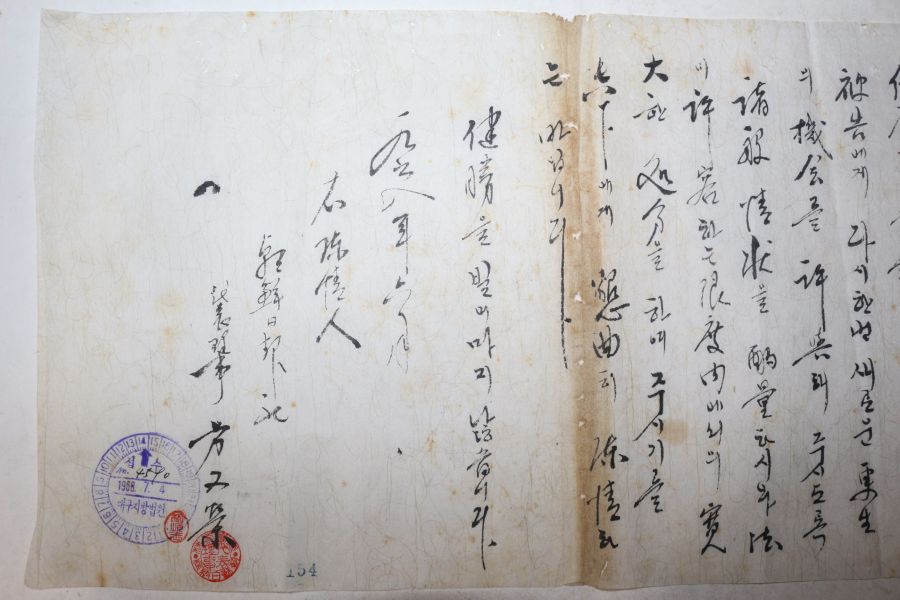 被告에게 다시한번 새로운 更生
의 機会를 許與해 주시도록
諸般 情状을 酌量하시와 法
이 許容하는 限度内에서의 寛
大한 処分을 하여 주시기를
에게 懇曲히 陳情하
는 바입니다
健勝을 빌어마지 않습니다
九八八年 六月
右 陳情人
朝鮮日報社
代表理事 方又榮
접수
No. 4590
1988. 7. 4
대구지방법원
154